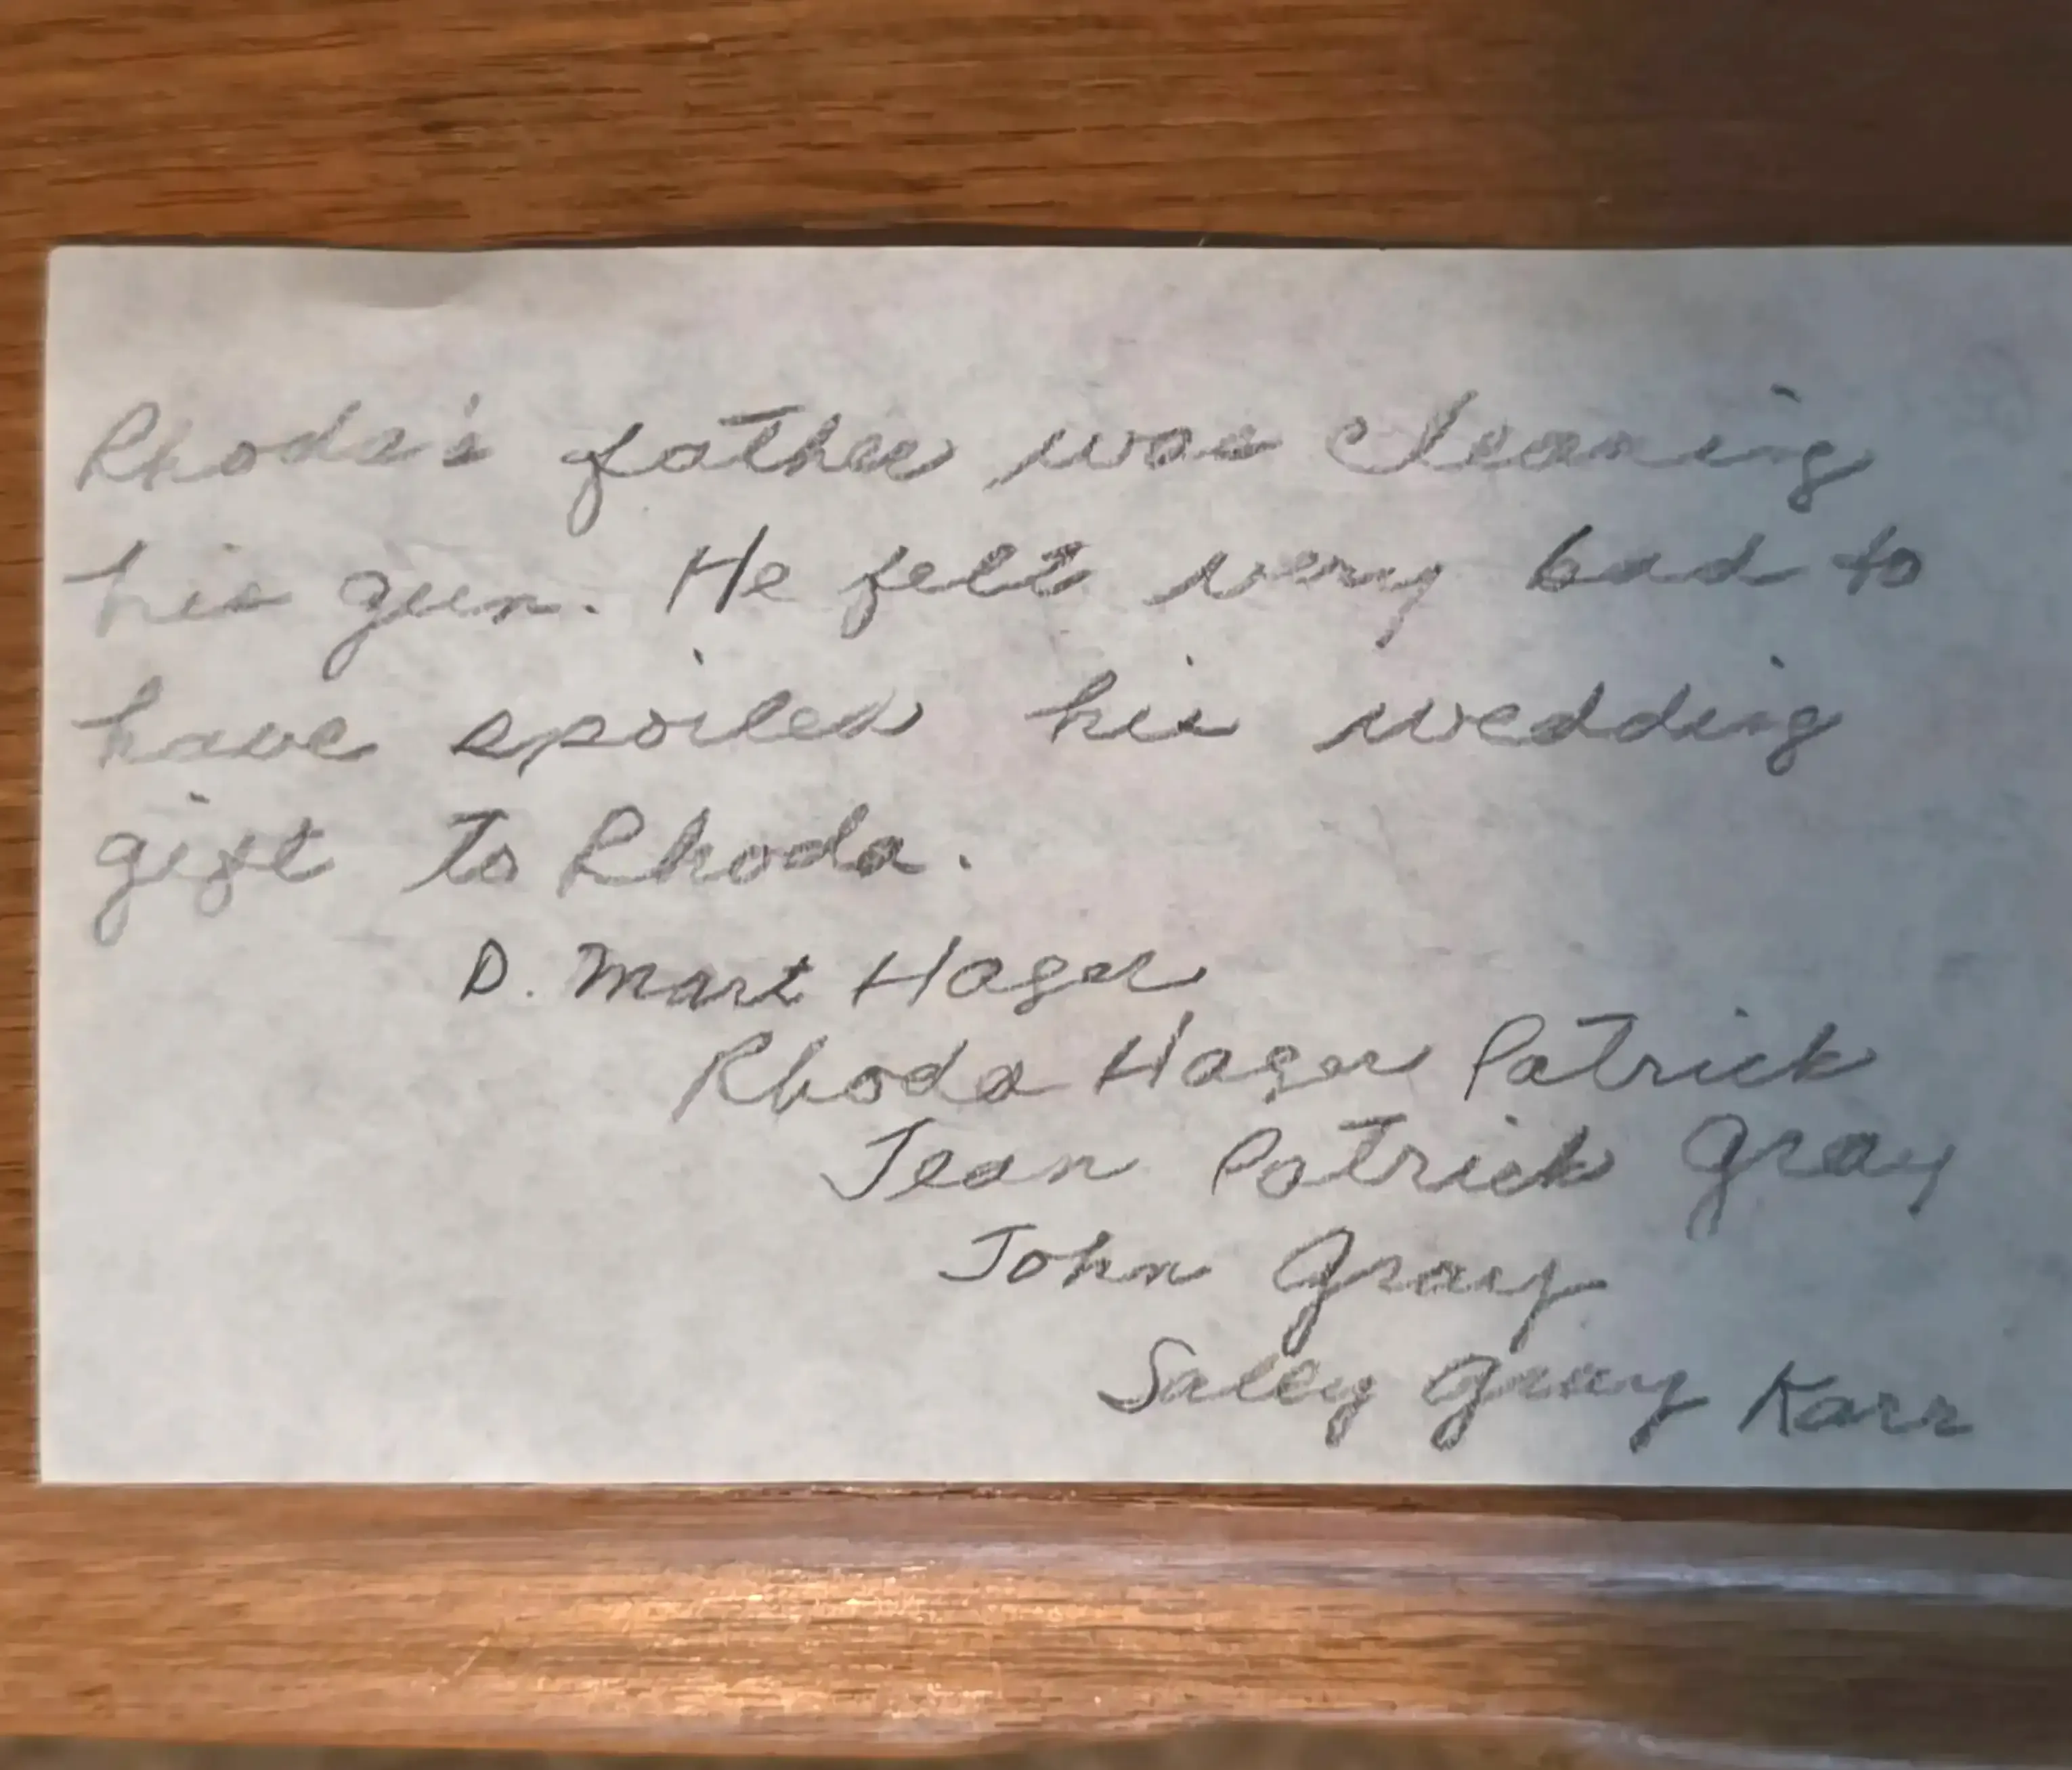 Rhoda's father was cleaning
his gun. He felt very bad to
have spoiled his wedding
gift to Rhoda.
D. Mart Hager
Rhoda Hager Patrick
Jean Patrick Gray
John Gray
Salley Gray Karr